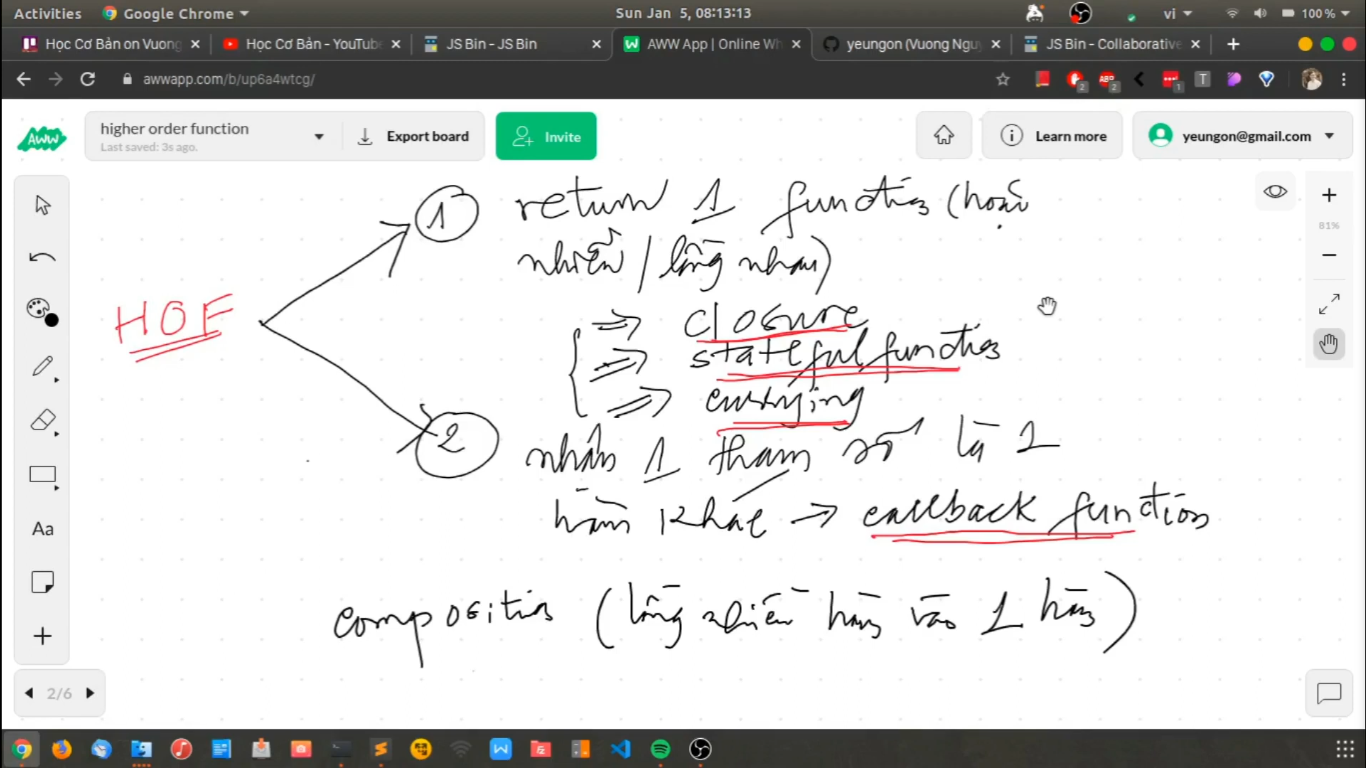 Activities Google Chrome Sun Jan 5, 08:13:13 vi 100 %
Học Cơ Bản on Vuong Học Cơ Bản - YouTube JS Bin - JS Bin AWW App | Online Wh yeungon (Vuong Ngu JS Bin - Collaborative
awwapp.com/b/up6a4wtcg/
AWW higher order function Export board Invite Learn more yeungon@gmail.com
Last saved: 3s ago.
1 return 1 function (hoặc
nhiều / lồng nhau)
81%
HOF
=> closure
=> stateful function
=> currying
2 nhận 1 tham số là 1
hàm khác -> callback function
Aa
composition (lồng nhiều hàm vào 1 hàm)
2/6